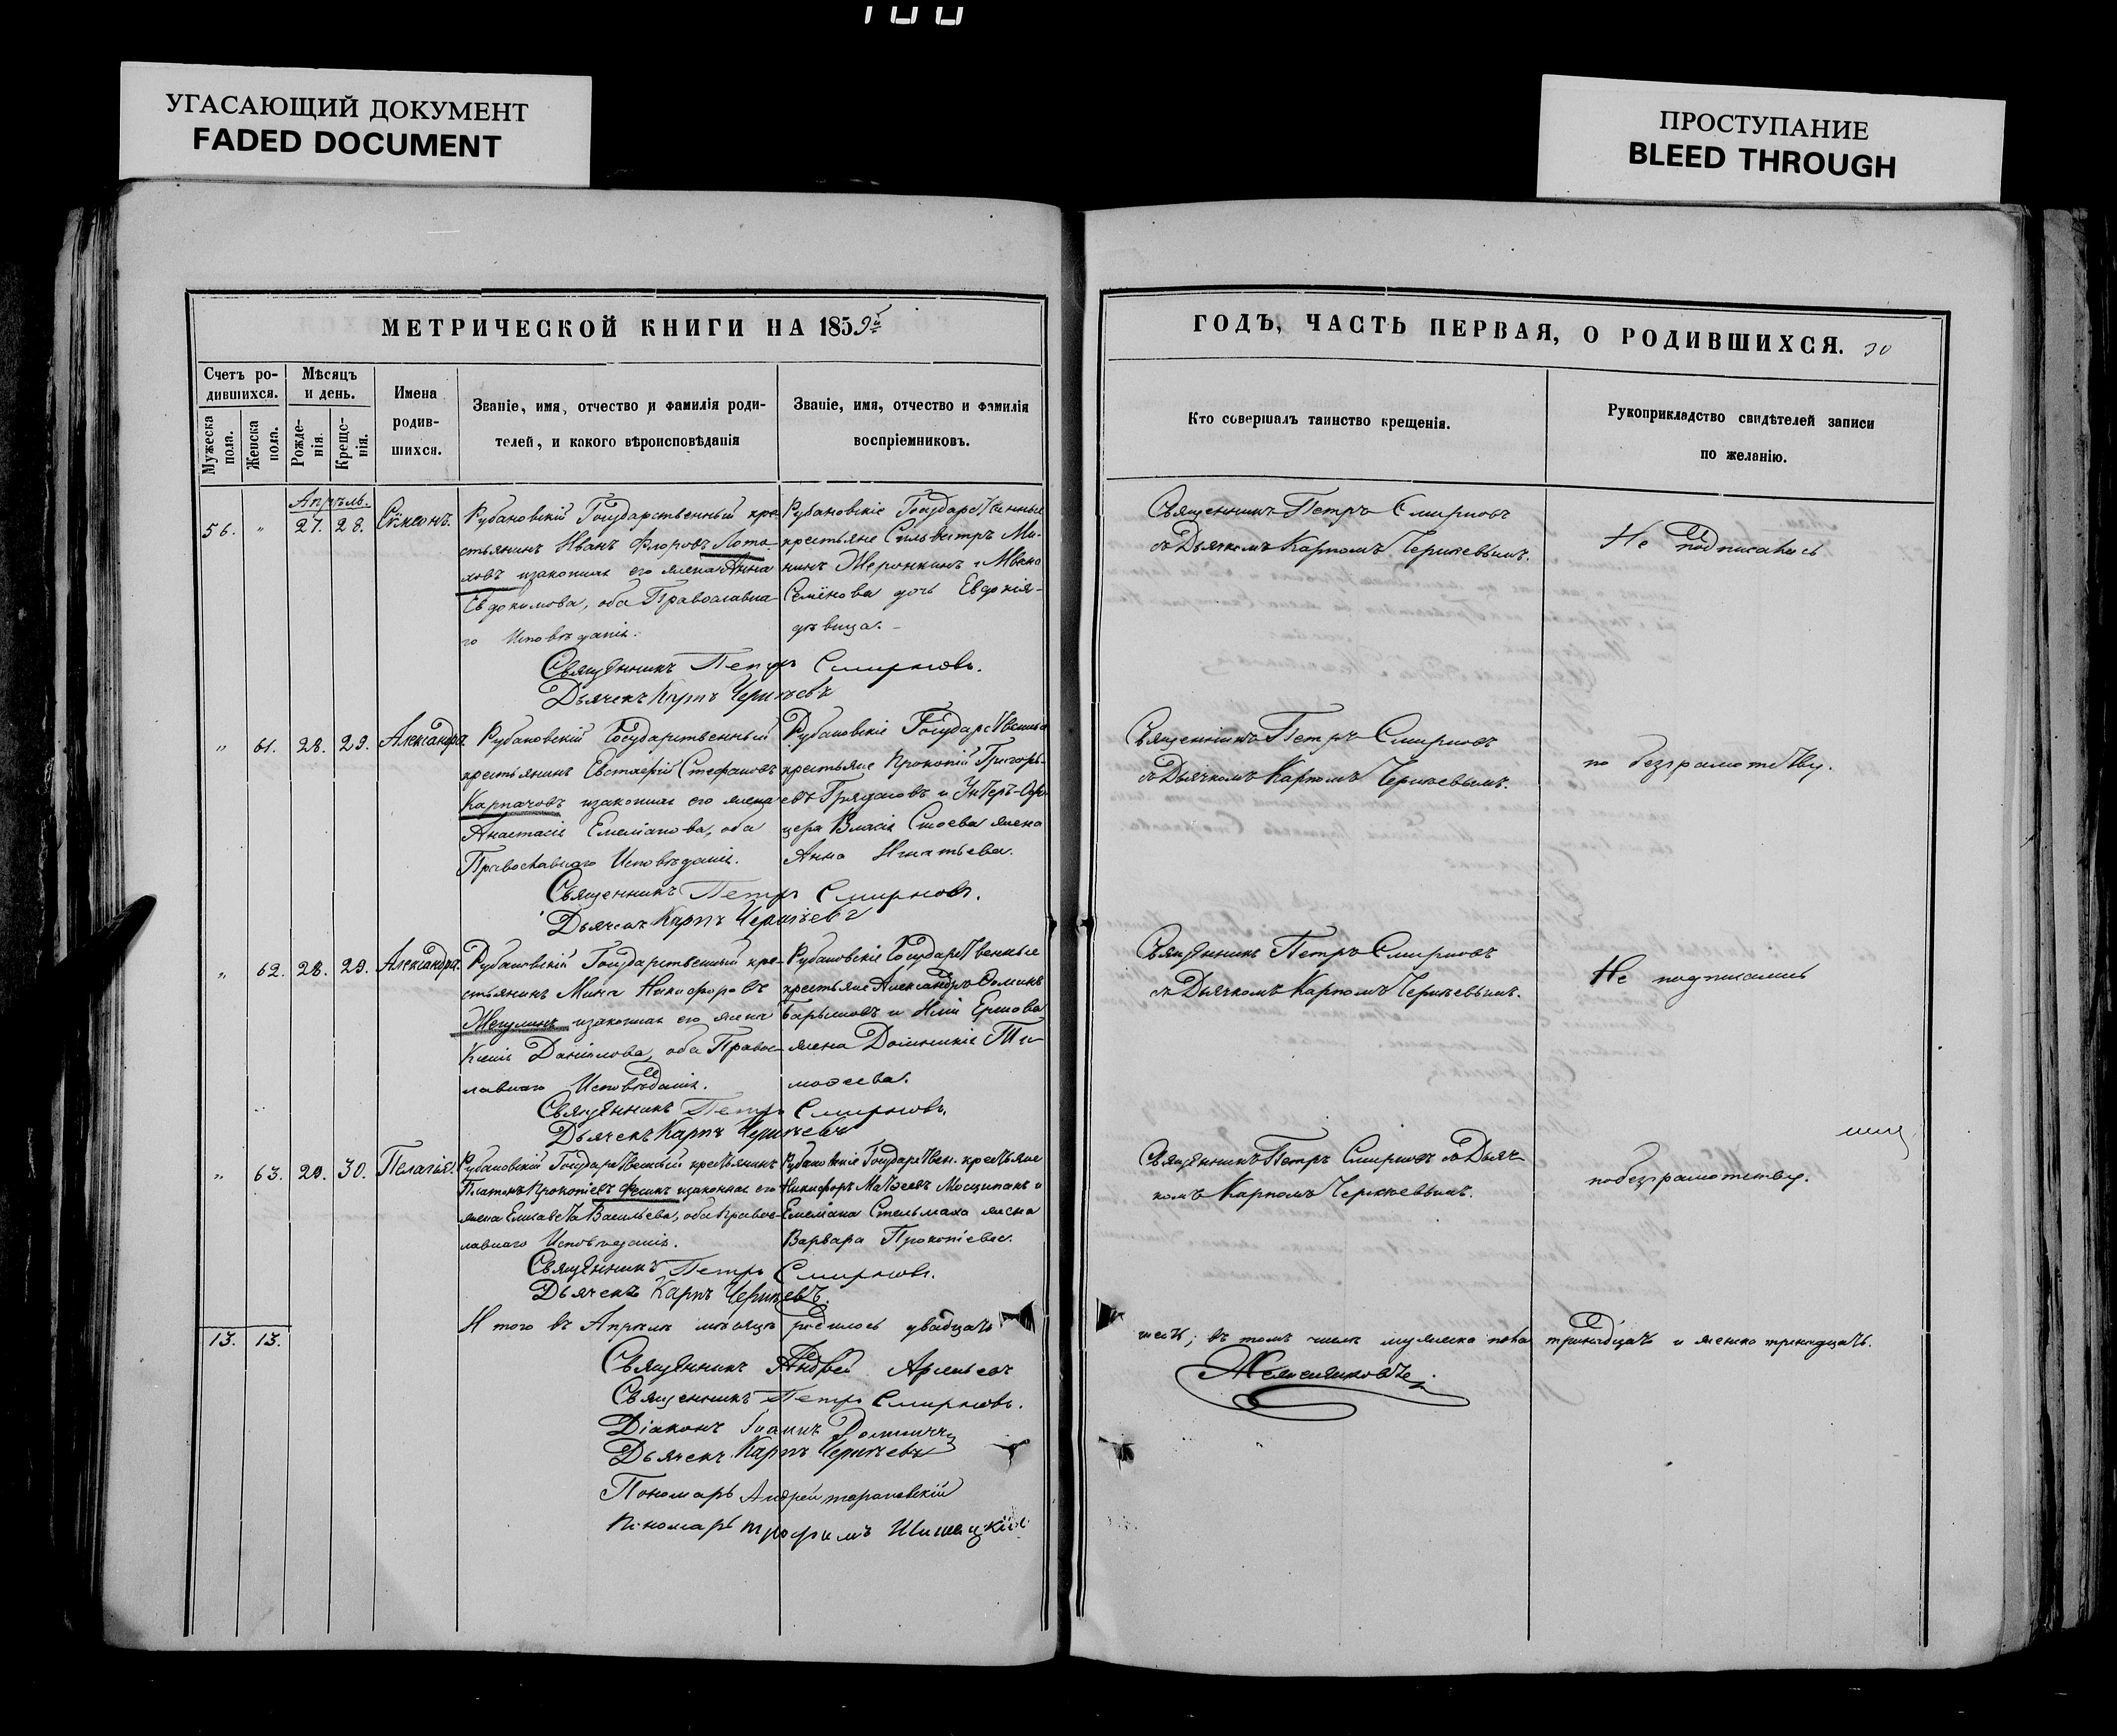 УГАСАЮЩИЙ ДОКУМЕНТ
FADED DOCUMENT
ПРОСТУПАНИЕ
BLEED THROUGH
МЕТРИЧЕСКОЙ КНИГИ НА 1859й
Счетъ ро-
дившихся.
Мужеска пола.
Женска пола.
Мѣсяцъ
и день.
Рожде-
нія.
Креще-
нія.
Имена
родив-
шихся.
Званіе, имя, отчество и фамилія роди-
телей, и какого вѣроисповѣданія
Званіе, имя, отчество и фамилія
воспріемниковъ.
Апрѣль.
56. " 27. 28. Сѵмеонъ.
Рубановскій Государственный кре-
стьянинъ Иванъ Флоровъ
законная его жена Анна
Евдокимова, оба Православна-
го Исповѣданія.
Рубановскіе Государственные
крестьяне Сильвестръ Ми-
нинъ и Ивана
Семенова дочь Евдокія-
дѣвица.
Священникъ Петръ Смирновъ.
Дьячекъ Карпъ
" 61. 28. 29. Александра
Рубановскій Государственный
крестьянинъ Евстафій Стефановъ
Карпачовъ законная его жена
Анастасія Емеліанова, оба
Православнаго Исповѣданія.
Рубановскіе Государственные
крестьяне Прокопій Григорь-
евъ и Унтеръ-Офи-
цера Власія жена
Анна Игнатьева.
Священникъ Петръ Смирновъ.
Дьячекъ Карпъ
" 62. 28. 29. Александра.
Рубановскій Государственный кре-
стьянинъ Мина Никифоровъ
законная его жена
Ксенія Даніилова, оба Правос-
лавнаго Исповѣданія.
Рубановскіе Государственные
крестьяне Александръ Фоминъ
Барышовъ и Иліи Ершова
жена Домникія Ти-
мофеева.
Священникъ Петръ Смирновъ.
Дьячекъ Карпъ
" 63. 29. 30. Пелагія.
Рубановскій Государственный крестьянинъ
Платонъ Прокопіевъ законная его
жена Елисавета Васильева, оба Правос-
лавнаго Исповѣданія.
Рубановскіе Государствен. крестьяне
Никифоръ Матѳеевъ и
Емеліана Стельмаха жена
Варвара Прокопіева.
Священникъ Петръ Смирновъ.
Дьячекъ Карпъ
13. 13.
Итого въ Апрѣлѣ мѣсяцѣ родилось двадцать
Священникъ Андрей
Священникъ Петръ Смирновъ.
Діаконъ Іоаннъ
Дьячекъ Карпъ
Пономарь Андрей
Пономарь Трофимъ
ГОДЪ, ЧАСТЬ ПЕРВАЯ, О РОДИВШИХСЯ. 30
Кто совершалъ таинство крещенія.
Рукоприкладство свидѣтелей записи
по желанію.
Священникъ Петръ Смирновъ
съ Дьячкомъ Карпомъ
Не подписались
Священникъ Петръ Смирновъ
съ Дьячкомъ Карпомъ
по безграмотству.
Священникъ Петръ Смирновъ
съ Дьячкомъ Карпомъ
Не подписались
Священникъ Петръ Смирновъ съ Дьяч-
комъ Карпомъ
по безграмотству.
шесть; въ томъ числѣ мужеска пола тринадцать и женска тринадцать.